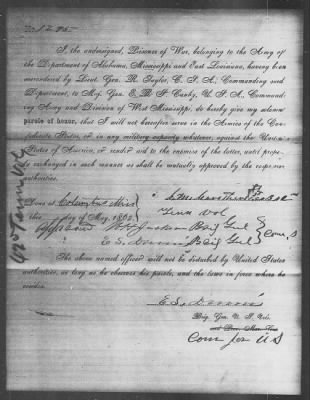 I, the undersigned, Prisoner of War, belonging to the Army of
the Department of Alabama, Mississippi and East Louisiana, having been
surrendered by Lieut. Gen. R. Taylor, C. S. A., Commanding said
Department, to Maj. Gen. E. R. S. Canby, U. S. A., Command-
ing Army and Division of West Mississippi, do hereby give my solemn
parole of honor, that I will not hereafter serve in the Armies of the Con-
federate States, or in any military capacity whatever, against the United
States of America, or render aid to the enemies of the latter, until prope-
ly exchanged in such manner as shall be mutually approved by the respec-
authorities.
Done at Columbus Miss
Tenn Vol
this day of May, 1865.
Approved W H Jackson Brig Genl
E S Dennis Brig Genl
Com S
The above named officer will not be disturbed by United States
authorities, as long as he observes his parole, and the laws in force where he
resides.
E. S. Dennis
Brig. Gen. U. S. Vols.
Com for U S